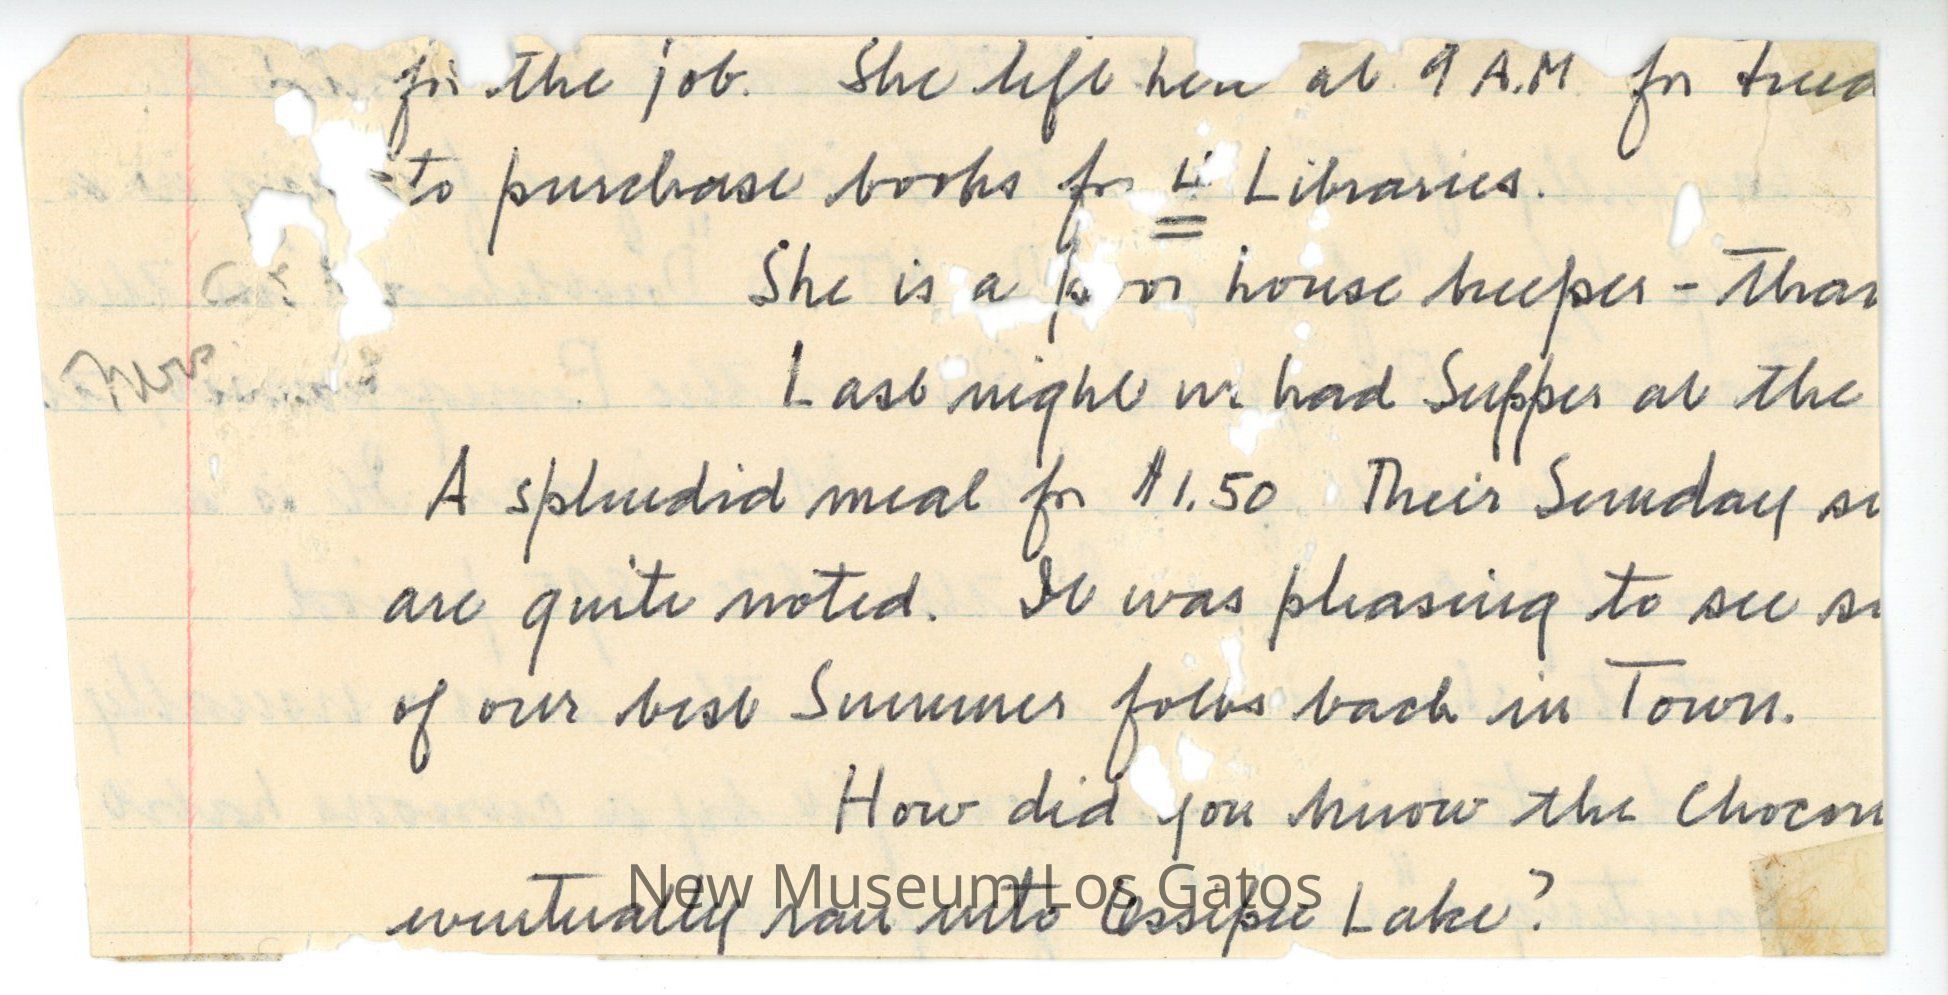 for the job. She left here at 9 A.M. for
to purchase books for 4 Libraries.
She is a poor house keeper - than
Last night we had Supper at the
A splendid meal for $1.50 Their Sunday su
are quite noted. It was pleasing to see so
of our best Summer folks back in Town.
How did you know the Chocoru
eventually ran into Ossipee Lake?
New Museum Los Gatos